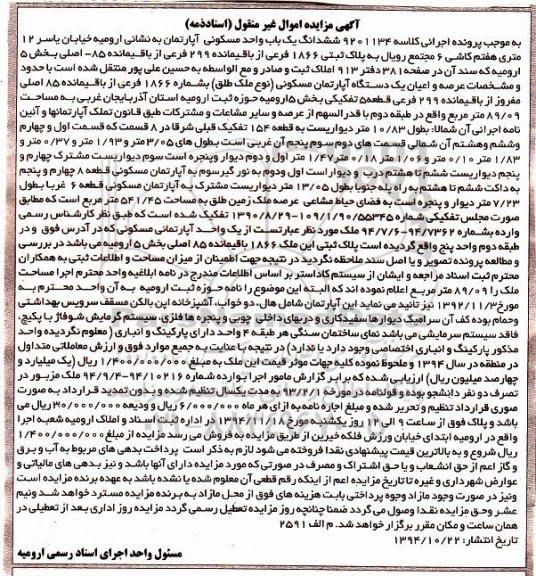 آگهی مزایده اموال غیر منقول (اسنادذمه)
به موجب پرونده اجرائی کلاسه ۹۲۰۱۱۳۴ ششدانگ یک باب واحد مسکونی آپارتمان به نشانی ارومیه خیابان یاسر ۱۲
متری هفتم کاشی ۶ مجتمع رویال به پلاک ثبتی ۱۸۶۶ فرعی از باقیمانده ۲۹۹ فرعی از باقیمانده ۸۵- اصلی بخش ۵
ارومیه که سند آن در صفحه ۳۸۱ دفتر ۹۱۳ املاک ثبت و صادر و مع الواسطه به حسین علی پور منتقل شده است با حدود
و مشخصات عرصه و اعیان یک دستگاه آپارتمان مسکونی (نوع ملک طلق) بشماره ۱۸۶۶ فرعی از باقیمانده ۸۵ اصلی
مفروز از باقیمانده ۲۹۹ فرعی قطعه ۵ تفکیکی بخش ۵ ارومیه حوزه ثبت ارومیه استان آذربایجان غربی به مساحت
۸۹/۰۹ متر مربع واقع در طبقه دوم با قدرالسهم از عرصه و سایر مشاعات و مشترکات طبق قانون تملک آپارتمانها و آئین
نامه اجرائی آن شمالا: بطول ۱۰/۸۳ متر دیواریست به قطعه ۱۵۴ تفکیکی قبلی شرقا در ۸ قسمت که قسمت اول و چهارم
وششم وهشتم آن شمالی قسمت های دوم سوم پنجم آن غربی است بطول های ۳/۰۵ متر و ۱/۹۳ متر و ۰/۳۷ متر و
۱/۸۳ متر ۰/۱۰ متر و ۱/۰۶ متر ۰/۱۸ متر ۱/۴۷ متر اول و دوم دیوار وپنجره است سوم دیواریست مشترک چهارم و
پنجم دیواریست ششم تا هشتم درب و دیوار است اول ودوم به نور گیرسوم به آپارتمان مسکونی قطعه ۸ چهارم و پنجم
به داکت ششم تا هشتم به راه پله جنوبا بطول ۱۳/۰۵ متر دیواریست مشترک به آپارتمان مسکونی قطعه ۶ غربا بطول
۷/۲۳ متر دیوار و پنجره است به فضای حیاط مشاعی عرصه ملک زمین طلق به مساحت ۵۴۱/۴۵ متر مربع است که مطابق
صورت مجلس تفکیکی شماره ۱۰۹/۹۰/۵۵۳۴۵-۱۳۹۰/۸/۲۹ تفکیک شده است که طبق نظر کارشناس رسمی
وارده بشماره ۹۴۷۳۶۲-۹۴/۷/۶ ملک مورد نظر عبارتست از یک واحد آپارتمانی مسکونی که در آدرس فوق و در
طبقه دوم واحد پنج واقع گردیده است پلاک ثبتی این ملک ۱۸۶۶ باقیمانده ۸۵ اصلی بخش ۵ ارومیه می باشد در بررسی
و مطالعه پرونده تصویر و یا اصل سند ملاحظه نگردید در نتیجه جهت اطمینان از میزان مساحت و اطلاعات ثبتی به همکاران
محترم ثبت اسناد مراجعه و ایشان از سیستم کاداستر بر اساس اطلاعات مندرج در نامه ابلاغیه واحد محترم اجرا مساحت
ملک را ۸۹/۰۹ متر مربع اعلام نموده اند که البته این موضوع را نامه حوزه ثبت ارومیه به آن واحد محترم به
مورخ ۱۳۹۲/۱۱/۳ نیز تائید می نماید این آپارتمان شامل هال، دو خواب، آشپزخانه اپن بالکن مسقف سرویس بهداشتی
وحمام بوده کف آن سرامیک دیوارها سفیدکاری و دربهای داخلی چوبی و پنجره ها فلزی، سیستم گرمایش شوفاژ با پکیج،
فاقد سیستم سرمایشی می باشد نمای ساختمان سنگی هر طبقه ۴ واحد دارای پارکینگ و انباری (معلوم نگردیده واحد
مذکور پارکینگ و انباری اختصاصی وجود دارد یا ندارد) در نتیجه با عنایت به جمیع موارد فوق و ارزش معاملاتی متداول
در منطقه در سال ۱۳۹۴ و ملحوظ نموده کلیه جهات موثر قیمت این ملک به مبلغ ۱/۴۰۰/۰۰۰/۰۰۰ ریال (یک میلیارد و
چهارصد میلیون ریال) ارزیابی شده که برابر گزارش مامور اجرا بوارده شماره ۹۴۱۰۲۱۶-۹۴/۹/۴ ملک مزبور در
تصرف دو نفر دانشجو بوده و قولنامه در مورخه ۹۳/۶/۱ به مدت یکسال تنظیم شده و بدون تمدید قرارداد به صورت
صوری قرارداد تنظیم و تحریر شده و مبلغ اجاره نامه به ازای هر ماه ۶/۰۰۰/۰۰۰ ریال و ودیعه ۳۰/۰۰۰/۰۰۰ ریال می
باشد و پلاک فوق از ساعت ۹ الی ۱۲ روز یکشنبه مورخ در اداره ثبت اسناد و املاک ارومیه شعبه اجرا
واقع در ارومیه ابتدای خیابان ورزش فلکه خیرین از طریق مزایده به فروش می رسد مزایده از مبلغ ۱/۴۰۰/۰۰۰/۰۰۰
ریال شروع و به بالاترین قیمت پیشنهادی نقدا فروخته می شود لازم به ذکر است پرداخت بدهی های مربوط به آب و برق
و گاز اعم از حق انشعاب و یا حق اشتراک و مصرف در صورتی که مورد مزایده دارای آنها باشد و نیز بدهی های مالیاتی و
عوارض شهرداری و غیره تا تاریخ مزایده اعم از اینکه رقم قطعی آن معلوم شده یا نشده باشد به عهده برنده مزایده است
ونیز در صورت وجود مازاد وجوه پرداختی بابت هزینه های فوق از محل مازاد به برنده مزایده مسترد خواهد شد ونیم
عشر وحق مزایده نقدا وصول می گردد ضمنا چنانچه روز مزایده تعطیل رسمی گردد مزایده روز اداری بعد از تعطیلی در
همان ساعت و مکان مقرر برگزار خواهد شد. م الف ۲۵۹۱
تاریخ انتشار: ۱۳۹۴/۱۰/۲۲
مسئول واحد اجرای اسناد رسمی ارومیه